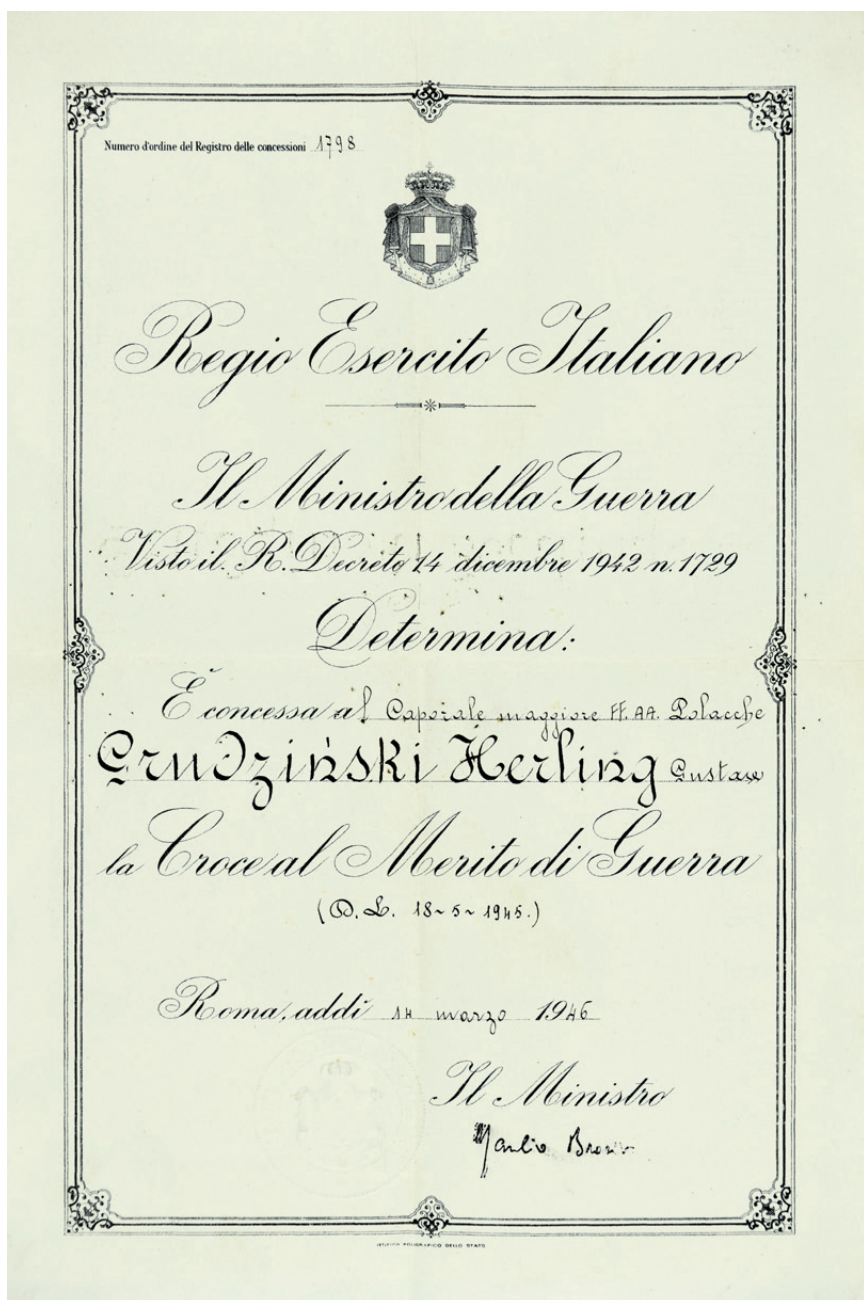 Numero d'ordine del Registro delle concessioni 1798
Regio Esercito Italiano
Il Ministro della Guerra
Visto il R. Decreto 14 dicembre 1942 n. 1729
Determina:
È concessa al Caporale maggiore FF. AA. Polacche
Grudziński Herling Gustaw
la Croce al Merito di Guerra
(D. L. 18~5~1945.)
Roma, addì 14 marzo 1946
Il Ministro
Manlio Brosio
ISTITUTO POLIGRAFICO DELLO STATO